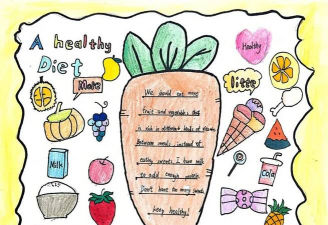 A healthy
Diet
More
Healthy
little
We should eat more
fruit and vegetables that
is rich in different kinds of
Between meals, instead of
eating sweets, I have milk
to add enough protein.
Don't have too many sweets
keep healthy!
Milk
Cola